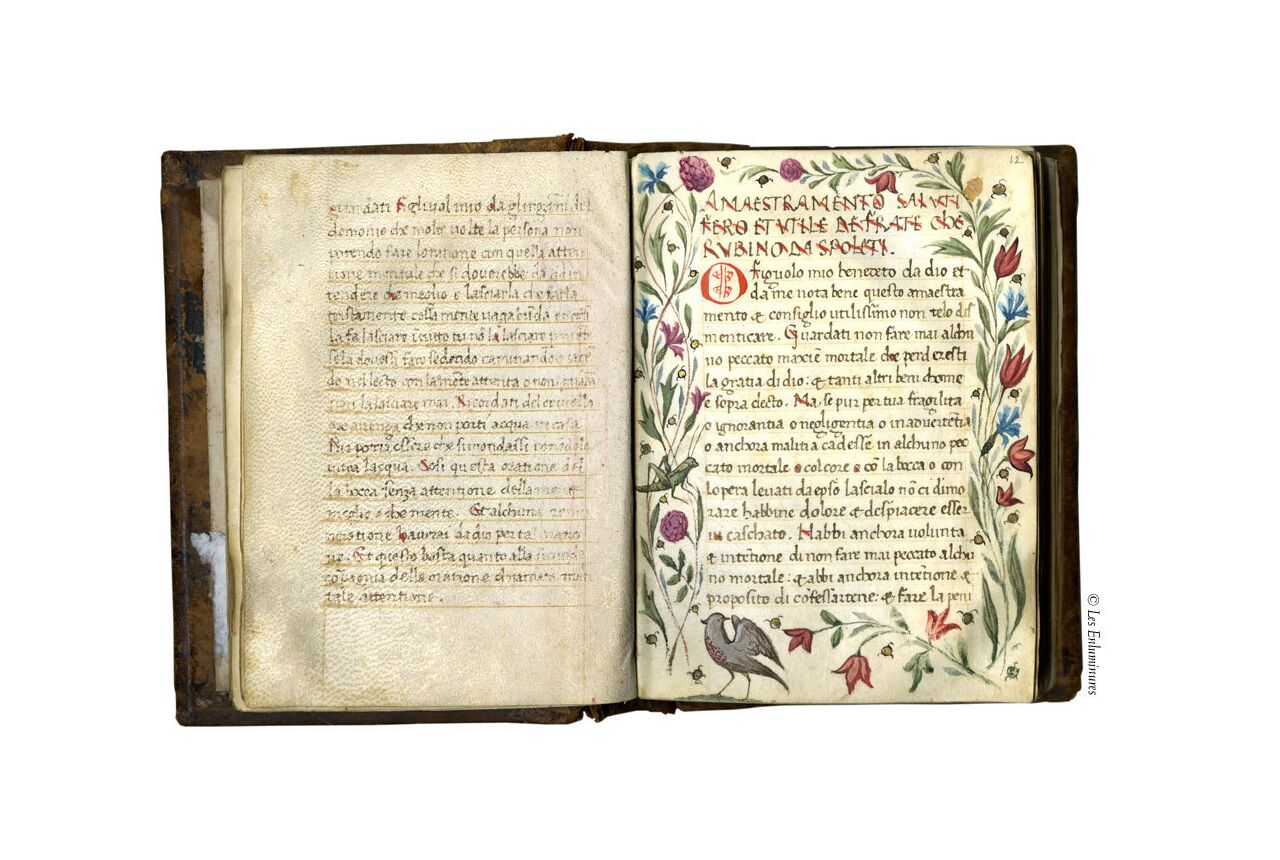 Guardati figliuol mio da gli inganni del
demonio che molte volte la persona non
potendo fare loratione con quella atten
tione mentale che si douerebbe da ad in
tendere che meglio e lasciarla che farla
colla mente
la fa lasciare tu nō la lasciare
se la douessi fare sedendo caminando o iace
do nel lecto con la mēte attenta o non
non la lasciare mai. Ricordati del
che auenga che non porti acqua in casa
essere che
lacqua. Cosi questa oratione
la bocca senza attentione della mente
meglio e che niente. Et alchuna
haurai da dio per tal
ne. Et questo basta quanto alla
della oratione chiamata men
tale attentione.
12
AMAESTRAMENTO SALUTI
FERO ET UTILE DE FRATE CHE
RUBINO DA SPOLETI.
O figiuolo mio benedeto da dio et
da me nota bene questo amaestra
mento & consiglio utilissimo non telo dis
menticare. Guardati non fare mai alchu
no peccato maxīe mortale che perderesti
la gratia di dio: & tanti altri beni chome
e sopra decto. Ma se pur per tua fragilita
o ignorantia o negligentia o inaduertētia
o anchora malitia cadesse in alchuno pec
cato mortale o col core o cō la bocca o con
lopera leuati da epso lascialo nō ci dimo
rare habbine dolore & despiacere esser
ui caschato. Habbi anchora uolunta
& intētione di non fare mai peccato alchu
no mortale: & abbi anchora intētione &
proposito di cōfessartene: & fare la peni
© Les Enluminures